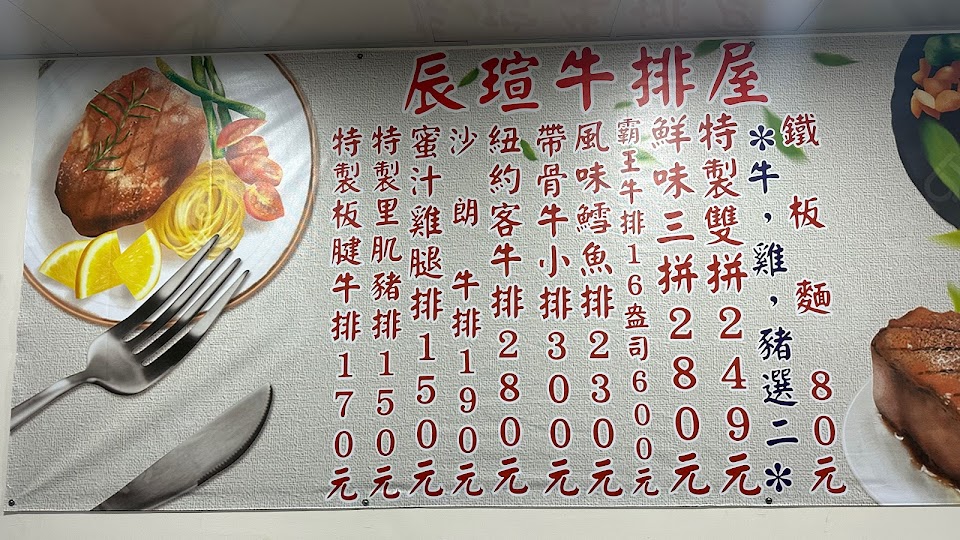 辰瑄牛排屋
鐵板麵80元
*牛，雞，豬選二*
特製雙拼249元
鮮味三拼280元
霸王牛排16盎司600元
風味鱈魚排230元
帶骨牛小排300元
紐約客牛排280元
沙朗牛排190元
蜜汁雞腿排150元
特製里肌豬排150元
特製板腱牛排170元